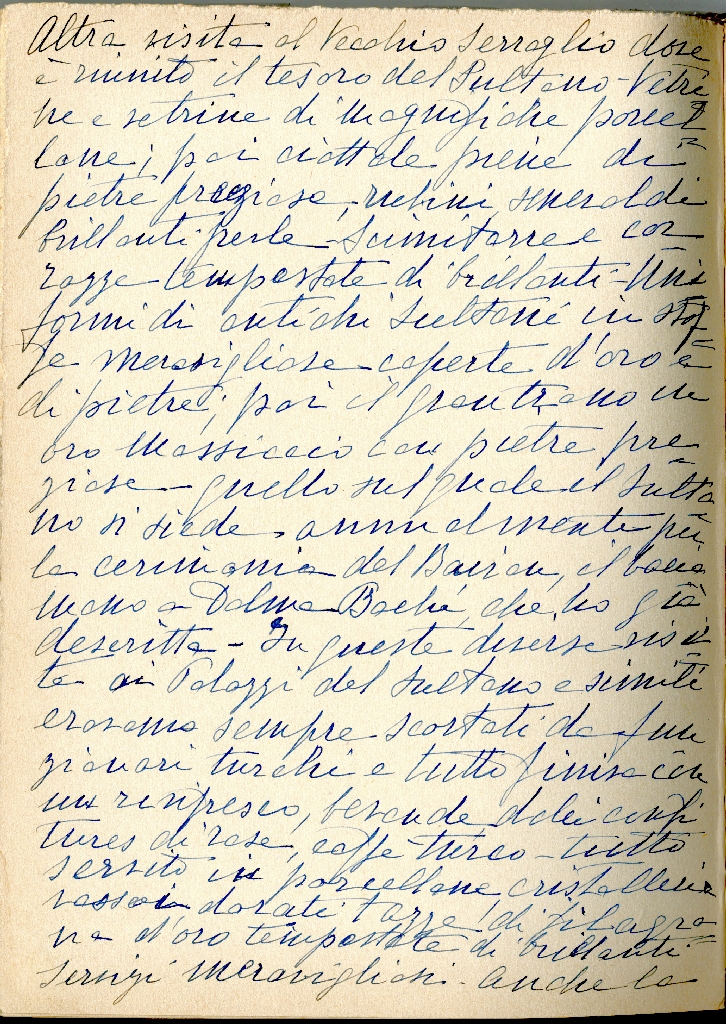 Altra visita al Vecchio Serraglio dove
è riunito il tesoro del Sultano - Vetri
ne e vetrine di magnifiche porcel
lane; poi ciottole piene di
pietre preziose, rubini, smeraldi
brillanti perle - Scimitarre e cor
razze tempestate di brillanti - Uni
formi di antichi Sultani in stof
fe meravigliose coperte d'oro e
di pietre; poi il gran trono in
oro massiccio con pietre pre
ziose - quello sul quale il Sulta
no si siede annualmente per
la cerimonia del Bairan, il bacia
mano a Dolma Baché, che ho già
descritta - In queste diverse visi
te ai Palazzi del Sultano e simili
eravamo sempre scortati da fun
zionari turchi e tutto finiva con
un rinfresco, bevande dolci confi
tures di rose, caffe turco - tutto
servito in porcellane cristalleria
vassoi dorati tazze di filagra
na d'oro tempestate di brillanti
servizi meravigliosi - Anche la